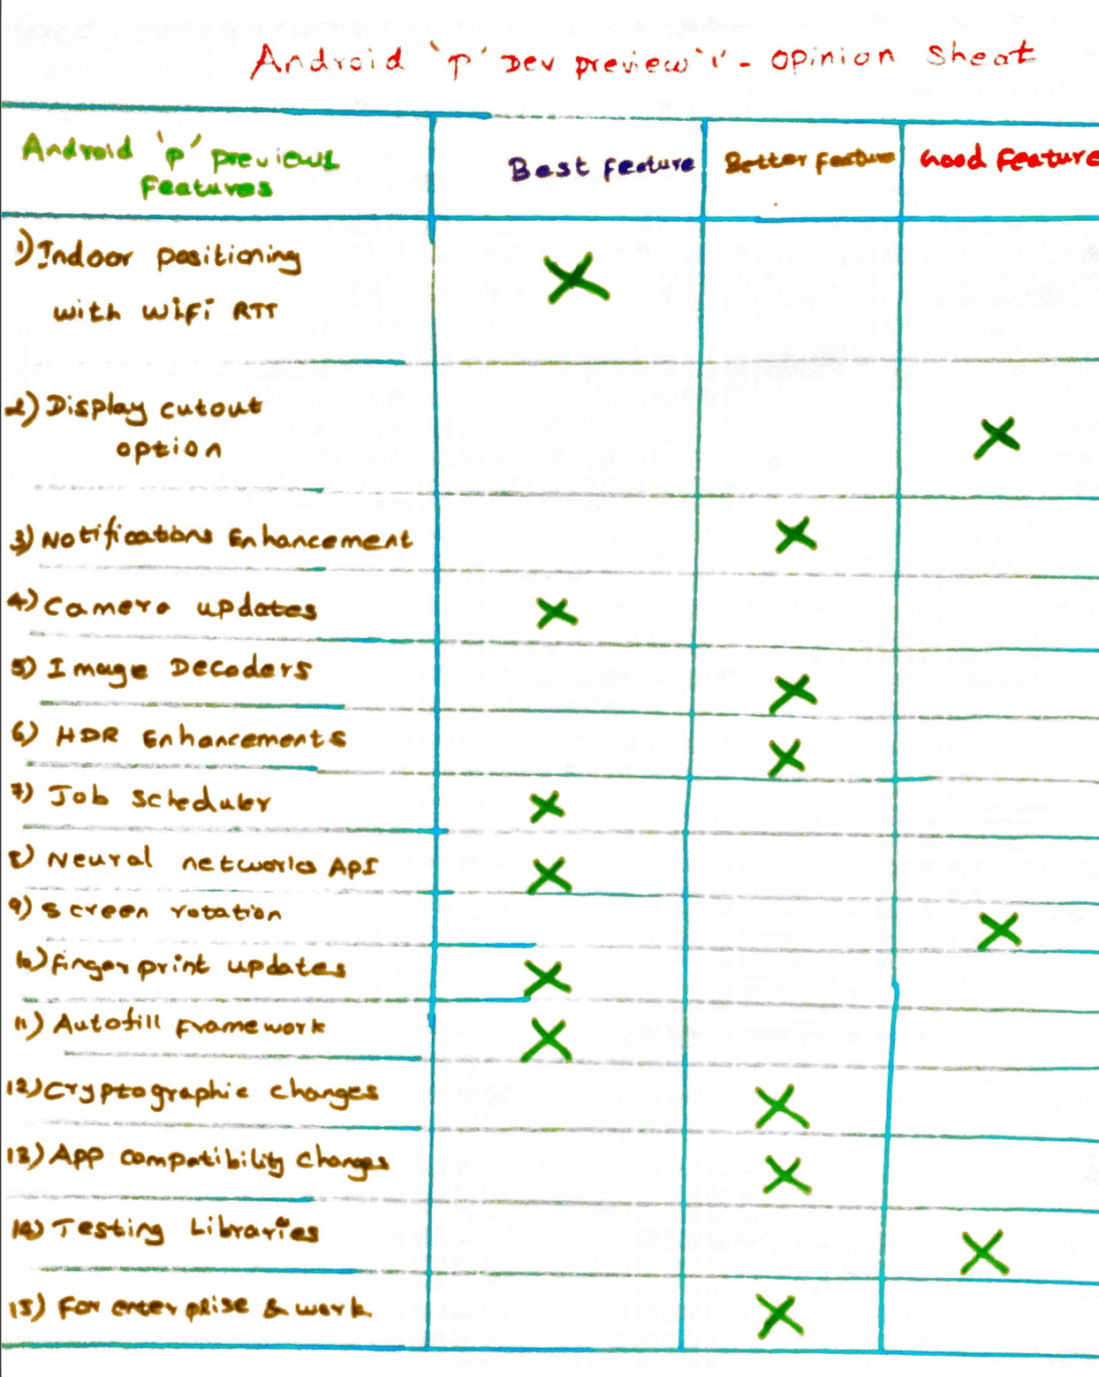 Android 'P' Dev preview '1' - Opinion Sheet
Android 'p' previews Features
Best feature
Better feature
Good Feature
1) Indoor positioning
with WiFi RTT
X
2) Display cutout
option
X
3) Notifications Enhancement
X
4) Camera updates
X
5) Image Decoders
X
6) HDR Enhancements
X
7) Job Scheduler
X
8) Neural networks API
X
9) Screen rotation
X
10) Finger print updates
X
11) Autofill Framework
X
12) Cryptographic changes
X
13) App Compatibility changes
X
14) Testing Libraries
X
15) For enterprise & work
X